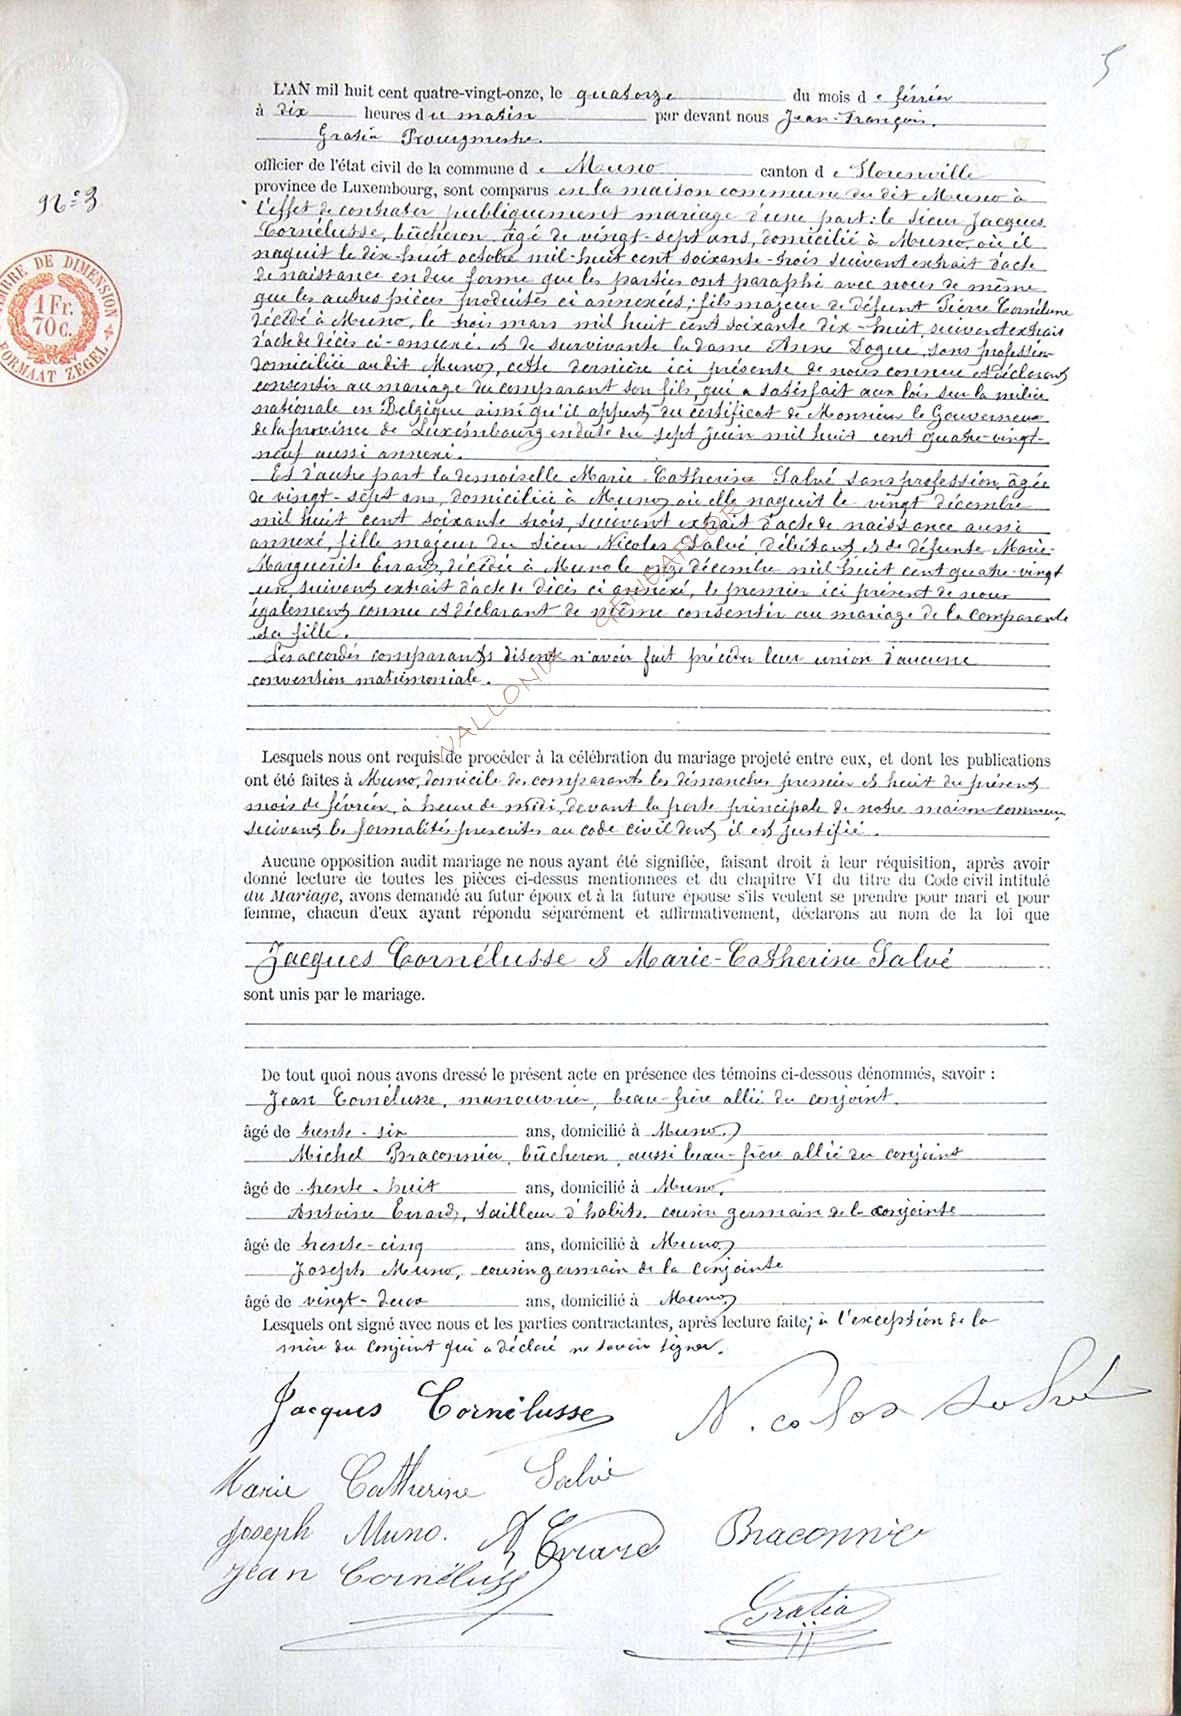 5
L'AN mil huit cent quatre-vingt-onze, le quatorze du mois d e février
à dix heures d u matin par devant nous Jean-François
Gratia Bourgmestre
officier de l'état civil de la commune d e Muno canton d e Florenville
N° 3
province de Luxembourg, sont comparus en la maison commune du dit Muno à
l'effet de contracter publiquement mariage d'une part: le sieur Jacques
Cornélusse, bûcheron, âgé de vingt-sept ans, domicilié à Muno, où il
naquit le dix-huit octobre mil-huit cent soixante-trois suivant extrait d'acte
de naissance en due forme que les parties ont paraphé avec nous de même
que les autres pièces produites ci annexées; fils majeur de défunt Pierre Cornélusse
décédé à Muno, le trois mars mil huit cent soixante dix-huit, suivant extrait
d'acte de décès ci-annexé. et de survivante la dame Anne Dogue, sans profession
domiciliée audit Muno, cette dernière ici présente de nous connue et déclarant
consentir au mariage du comparant son fils, qui a satisfait aux lois sur la milice
nationale en Belgique ainsi qu'il appert du certificat de Monsieur le Gouverneur
de la province de Luxembourg en date du sept juin mil huit cent quatre-vingt-
neuf aussi annexé.
Et d'autre part la demoiselle Marie Catherine Salvé sans profession, âgée
de vingt-sept ans, domiciliée à Muno où elle naquit le vingt décembre
mil huit cent soixante trois, suivant extrait d'acte de naissance aussi
annexé, fille majeur du sieur Nicolas Salvé, débitant et de défunte Marie-
Marguerite Evrard, décédée à Muno le onze décembre mil huit cent quatre-vingt
un, suivant extrait d'acte de décès ci annexé, le premier ici présent de nous
également connu et déclarant de même consentir au mariage de la comparante
sa fille.
Les accordés comparants disent n'avoir fait précéder leur union d'aucune
convention matrimoniale.
WALLONIX GENEAFLOR
TIMBRE DE DIMENSION
1 Fr.
70 C.
FORMAAT ZEGEL
Lesquels nous ont requis de procéder à la célébration du mariage projeté entre eux, et dont les publications
ont été faites à Muno, domicile des comparants les dimanches premier et huit du présent
mois de février, à heure de midi, devant la porte principale de notre maison commune,
suivant les formalités prescrites au code civil dont il est justifié.
Aucune opposition audit mariage ne nous ayant été signifiée, faisant droit à leur réquisition, après avoir
donné lecture de toutes les pièces ci-dessus mentionnees et du chapitre VI du titre du Code civil intitulé
du Mariage, avons demandé au futur époux et à la future épouse s'ils veulent se prendre pour mari et pour
femme, chacun d'eux ayant répondu séparément et affirmativement, déclarons au nom de la loi que
Jacques Cornélusse et Marie-Catherine Salvé
sont unis par le mariage.
De tout quoi nous avons dressé le présent acte en présence des témoins ci-dessous dénommés, savoir :
Jean Cornélusse, manouvrier, beau-frère allié du conjoint.
âgé de trente-six ans, domicilié à Muno
Michel Braconnier, bûcheron, aussi beau-frère allié du conjoint
âgé de trente-huit ans, domicilié à Muno.
Antoine Evrard, tailleur d'habits, cousin germain de la conjointe
âgé de trente-cinq ans, domicilié à Muno
Joseph Muno, cousin germain de la conjointe
âgé de vingt-deux ans, domicilié à Muno
Lesquels ont signé avec nous et les parties contractantes, après lecture faite; à l'exception de la
mère du conjoint qui a déclaré ne savoir signer.
Jacques Cornélusse Nicolas Salvé
Marie Catherine Salvé
Joseph Muno. A Evrard Braconnier
Jean Cornélusse
Gratia